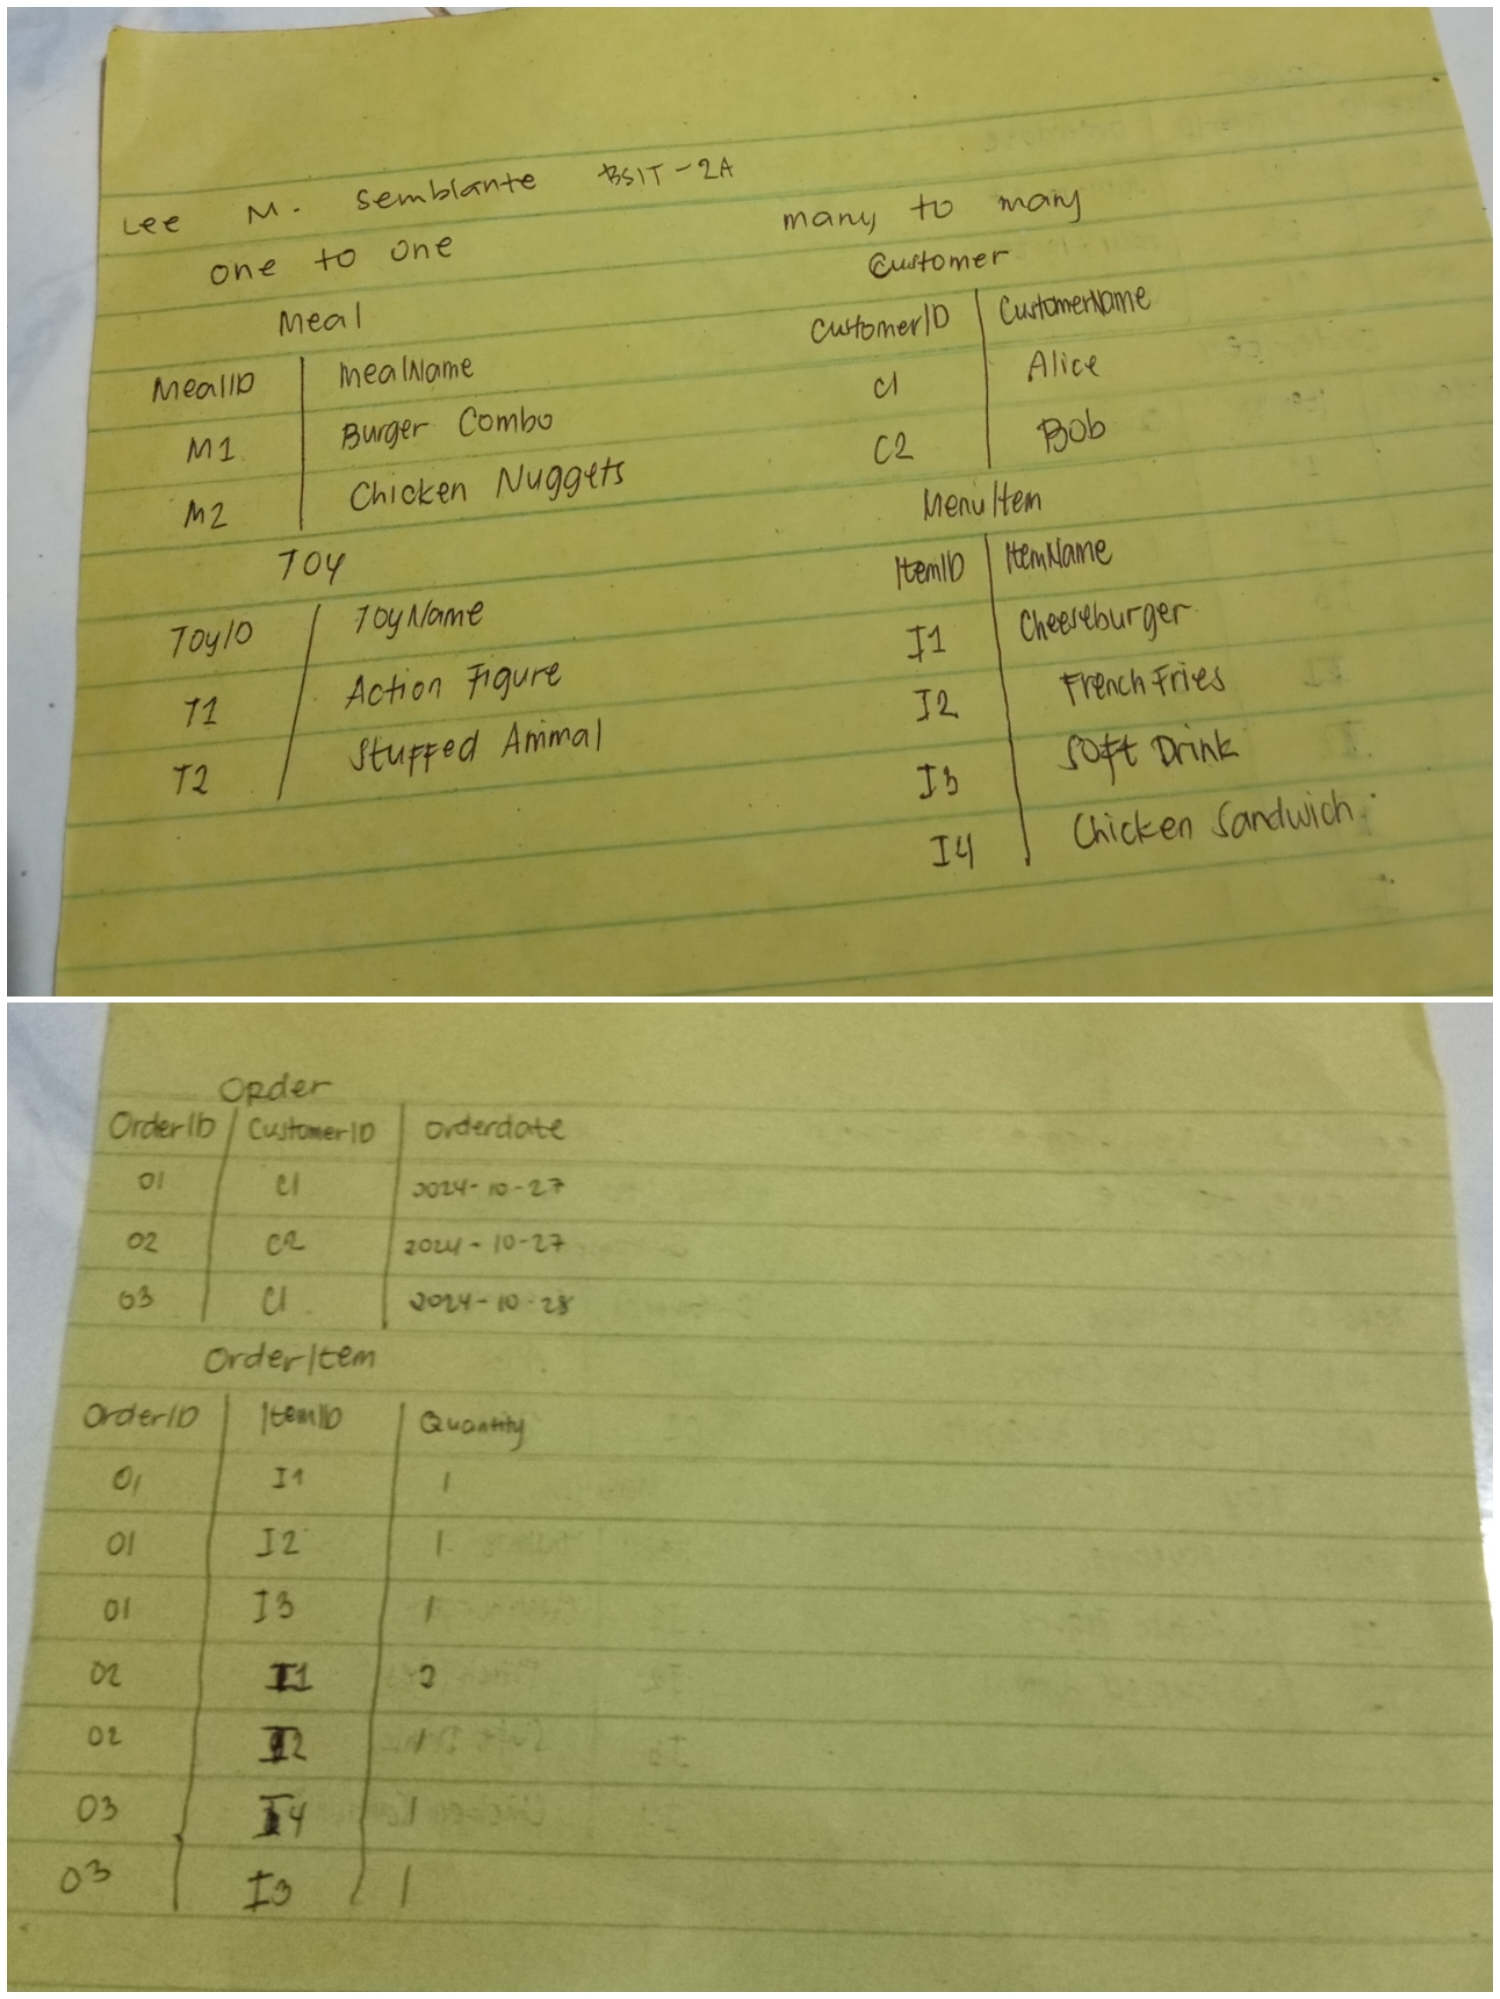 Lee M. Semblante BSIT-2A
one to one
Meal
MealID MealName
M1 Burger Combo
M2 Chicken Nuggets
TOY
ToyID ToyName
T1 Action Figure
T2 Stuffed Animal
many to many
Customer
CustomerID CustomerName
C1 Alice
C2 Bob
MenuItem
ItemID ItemName
I1 Cheeseburger
I2 French Fries
I3 Soft Drink
I4 Chicken Sandwich
Order
OrderID CustomerID orderdate
O1 C1 2024-10-27
O2 C2 2024-10-27
O3 C1 2024-10-28
OrderItem
OrderID ItemID Quantity
O1 I1 1
O1 I2 1
O1 I3 1
O2 I1 2
O2 I2 1
O3 I4 1
O3 I3 1